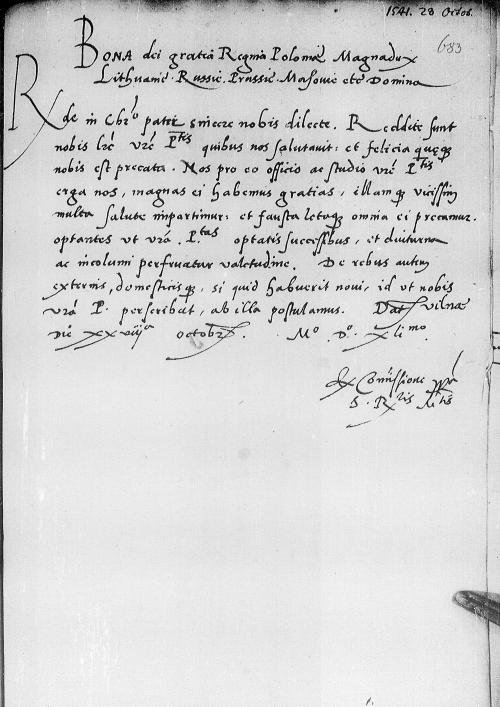 1541. 28 Octob.
683
BONA dei gratia Regina Polonie Magnadux
Lithuanie. Russie. Prussie. Masovie etc Domina
Rde in Chro patri sincere nobis dilecte. Reddite sunt
nobis lre vre Ptis quibus nos salutavit: et felicia queq
nobis est precata. Nos pro eo officio ac studio vre Ptis
erga nos, magnas ei habemus gratias, illamq vicissim
multa salute impartimur: et fausta letaq omnia ei precamur.
optantes ut vra. Ptas optatis successibus, et diuturna
ac incolumi perfruatur valetudine. De rebus autem
externis, domesticisq, si quid habuerit novi, id ut nobis
vra P. perscribat, ab illa postulamus. Dat Vilnae
Die xxviija octobr. Mo. Do. xlimo
Ex Comissione ppa
S. Rlis Mtis